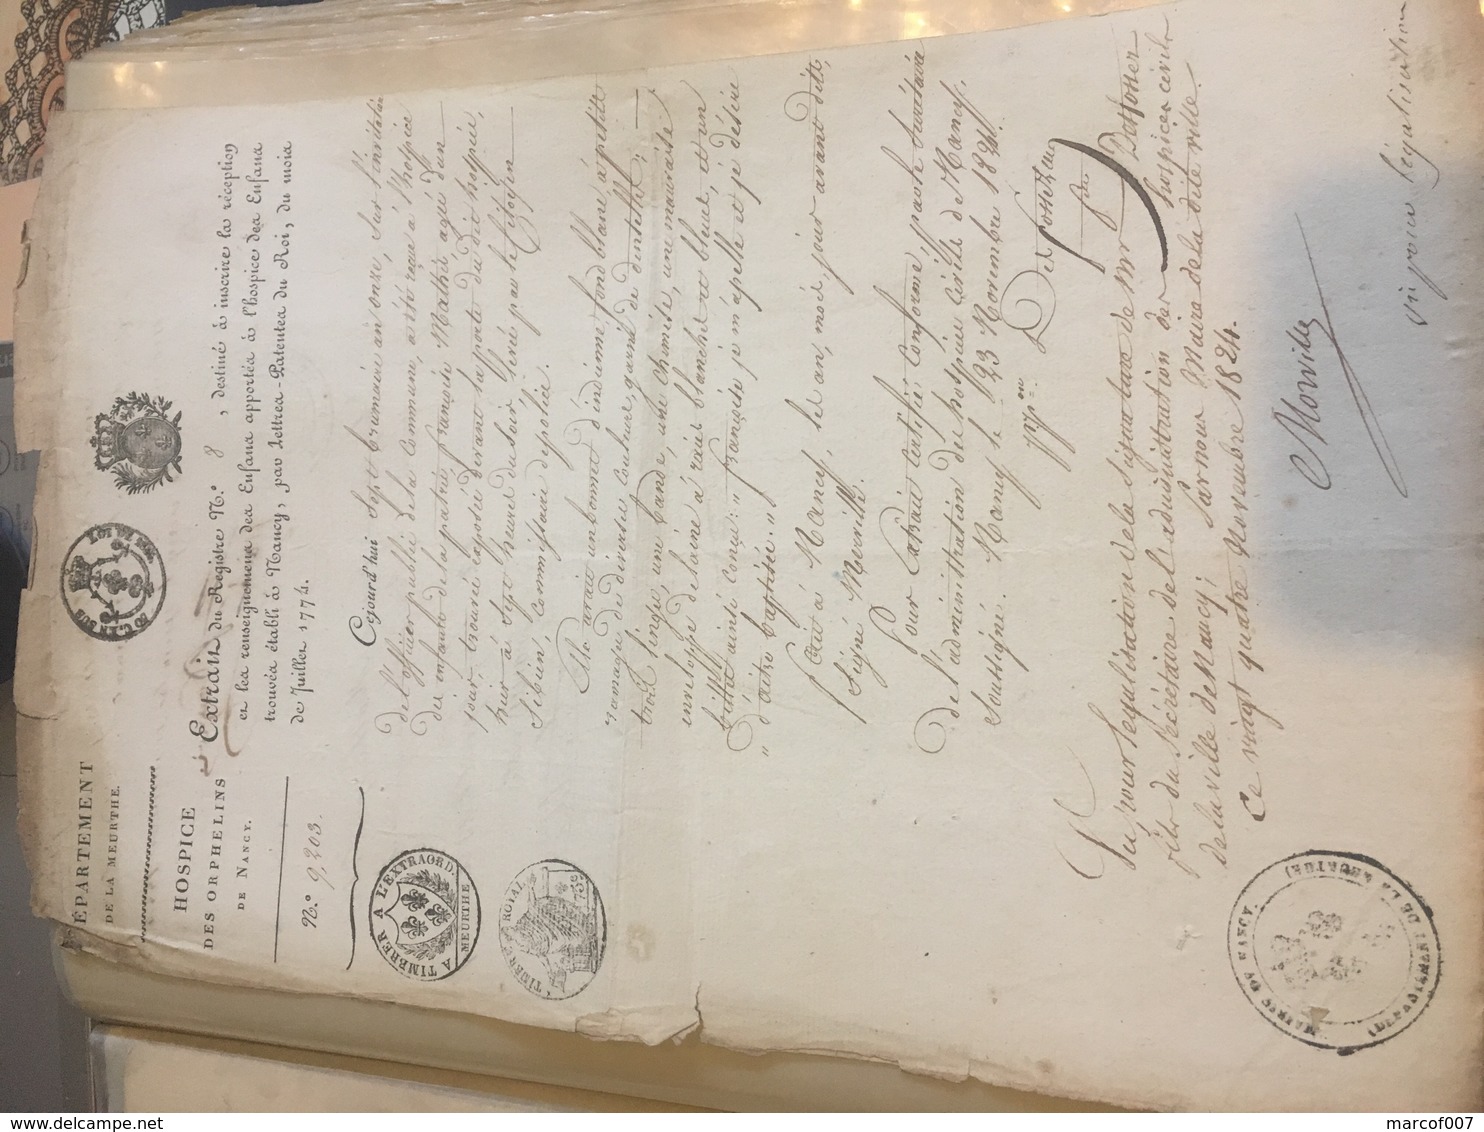 DÉPARTEMENT
DE LA MEURTHE.
HOSPICE
DES ORPHELINS
DE NANCY.
N.° 9,203.
A TIMBRER A L'EXTRAORD.
MEURTHE
TIMBRE ROYAL
75c
Extrait du Registre N.° 8, destiné à inscrire la réception
et les renseignemens des Enfans apportés à l'hospice des Enfans
trouvés établi à Nancy, par Lettres-Patentes du Roi, du mois
de Juillet 1774.
Cejourd'hui Sept brumaire an onze, Sur l'invitation
de l'officier public de la Commune, a été recue à l'hospice
des enfants de la patrie françoise Mathie agée d'un
jour, trouvée exposée devant la porte du dit hospice,
hier à Sept heures du Soir, Signé par le Citoyen
Sibien, Commissaire de police.
Elle avait un bonnet d'indienne fond blanc à petitte
ramage de diverses couleurs, garni de dentelle, —
trois linges, une bande, une chemise, une mauvaise
enveloppe de laine à raies blanches et bleues, et un
billet ainsi conçu: „ françoise je m'apelle et je désire
„ d'aitre baptisée. „
fait à Nancy, les an, mois, jour avant dits,
Signé Morville.
Pour Extrait Certifié Conforme, par le Secrétaire
de l'administration des hospices Civils de Nancy,
Soussigné. Nancy le 23 Novembre 1824.
Vu pour legalisation de la signature de Mr Delfosser
Secrétaire de l'administration des hospices civils
de la ville de Nancy, par nous Maire de la dite ville.
Ce vingt quatre Novembre 1824.
Morville
vu pour légalisation
MAIRIE DE NANCY.
(DÉPARTEMENT DE LA MEURTHE)
marcof007